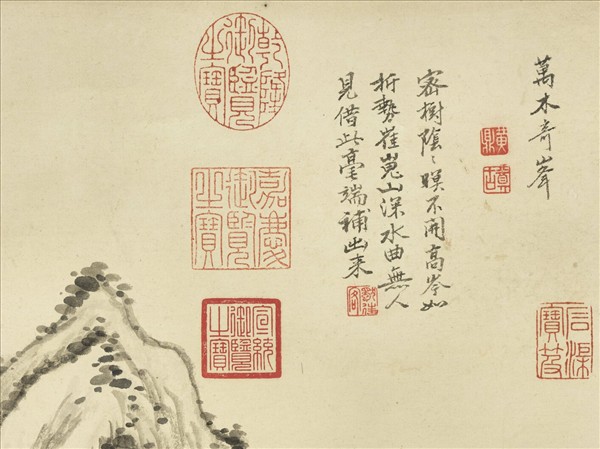 石渠寶笈
萬木奇峯
密樹陰〻暝不開高岑如
折勢崔嵬山深水曲無人
見借此毫端補出來
乾隆御覽之寶
嘉慶御覽之寶
宣統御覽之寶